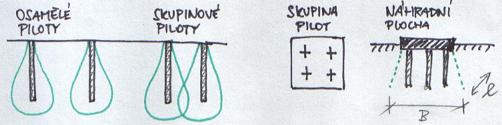 OSAMĚLÉ
PILOTY
SKUPINOVÉ
PILOTY
SKUPINA
PILOT
NÁHRADNÍ
PLOCHA
B
l